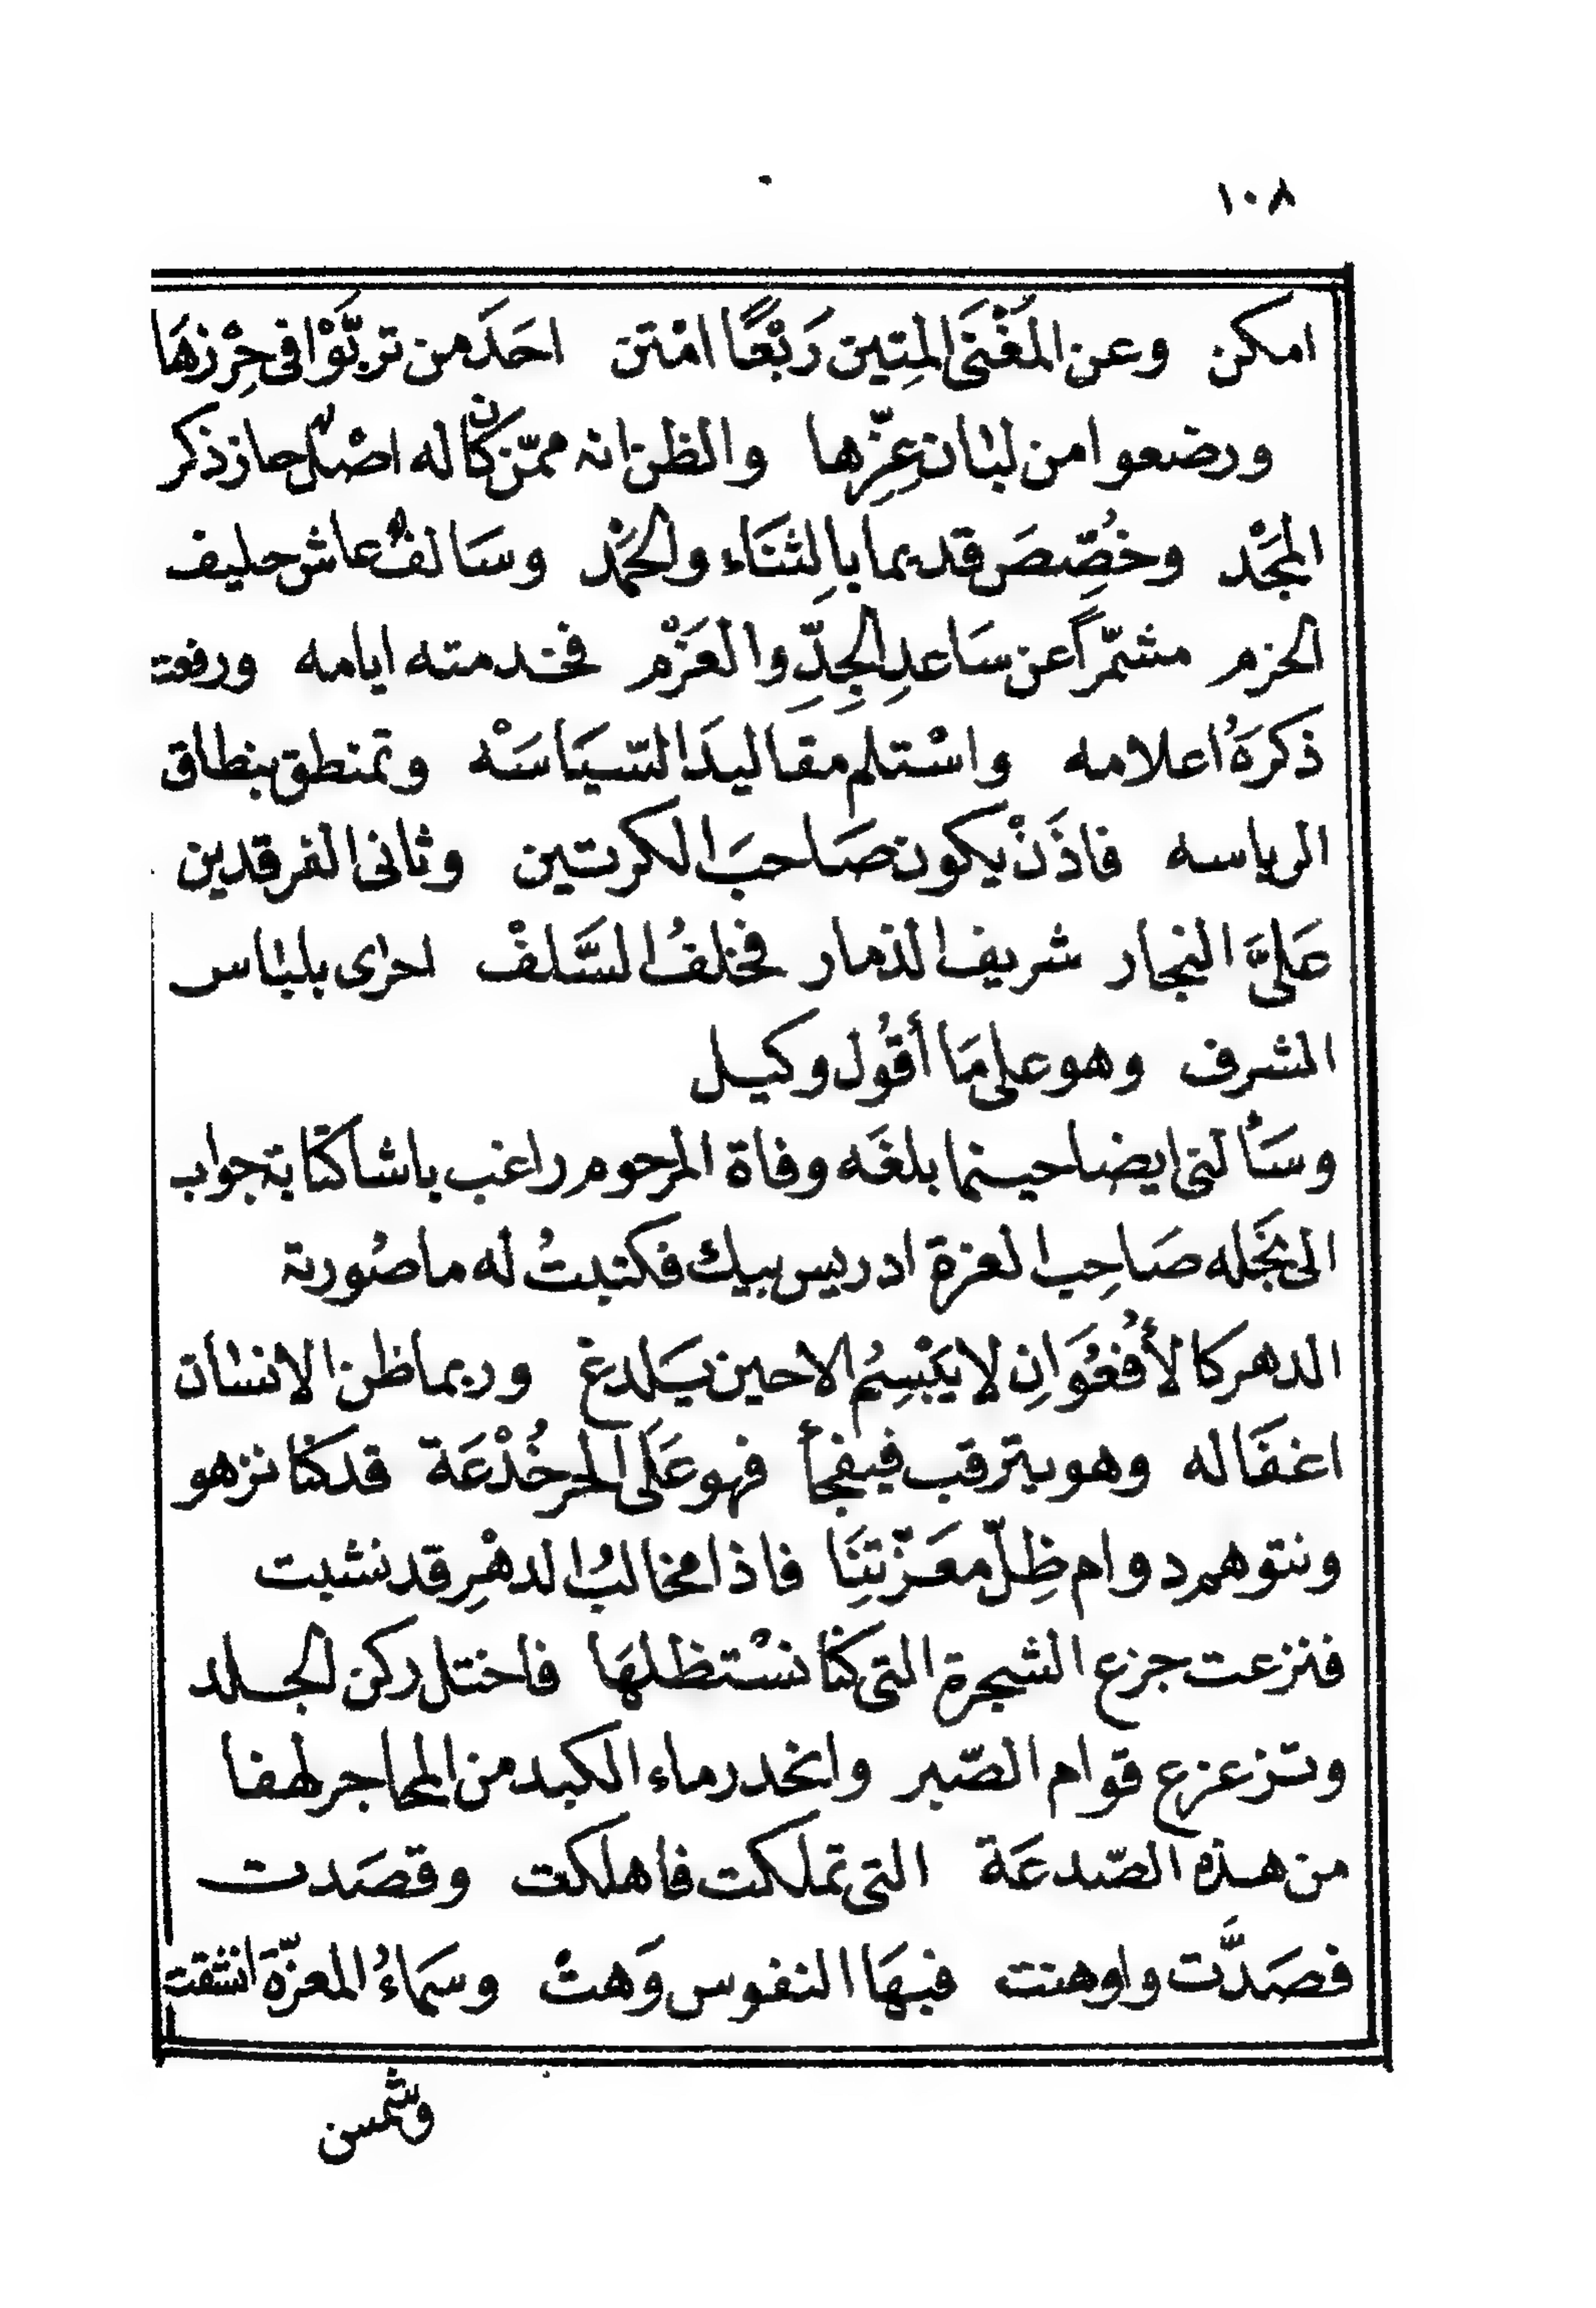 ١٠٨
امكن وعن المَغْنَى المتِين رَبْعًا امْتن احَدَ من تربَّوْا فى حِرْزهَا
ورضعوا من لبان عِزِّها والظن انه ممّن كان له اصْلٌ حاز ذكر
المجَدْ وخُصِّصَ قديما بالثنَاء والحَمْد وسَالفٌ عاش حليف
الحزم مشمّراً عن سَاعدِ الجِدِّ والعَزْم فخدمته ايامه ورفعت
ذكرَهُ اعلامه واسْتلم مقاليدَ السّيَاسَهْ وتمنطق بنطاق
الرياسه فاذَنْ يكون صَاحبَ الكرتين وثانى الفرقدين
عَلىَّ النجار شريف الذمار فخلفُ السَّلفْ احرى بلباس
الشرف وهو على مَا أقُول وكيل
وسَألتى ايضا حينما بلغَه وفاة المرحوم راغب باشا كتابة جواب
الى نجَله صَاحِب العزة ادريس بيك فكتبتُ له ما صُورته
الدهر كالأُفعُوَانِ لا يَبْسِمُ الا حين يَلدغ وربما ظن الانسان
اغفَاله وهو يترقب فيفجأ فهو عَلَى الحر خُدْعَة قد كنا نزهو
ونتوهم دوام ظِلّ معَزّتنَا فاذا مخالبُ الدهْرِ قد نشبت
فنزعت جزع الشجرة التى كنَّا نسْتظلهَا فاختل ركن الجلد
وتزعزع قوام الصّبر وانحدر ماء الكبد من المحاجر لهفا
من هذه الصّدعَة التى تملكت فاهلكت وقصَدت
فصَدَّت واوهنت فبهَا النفوس وَهتْ وسَماءُ المعزّة انشقت
وشمس